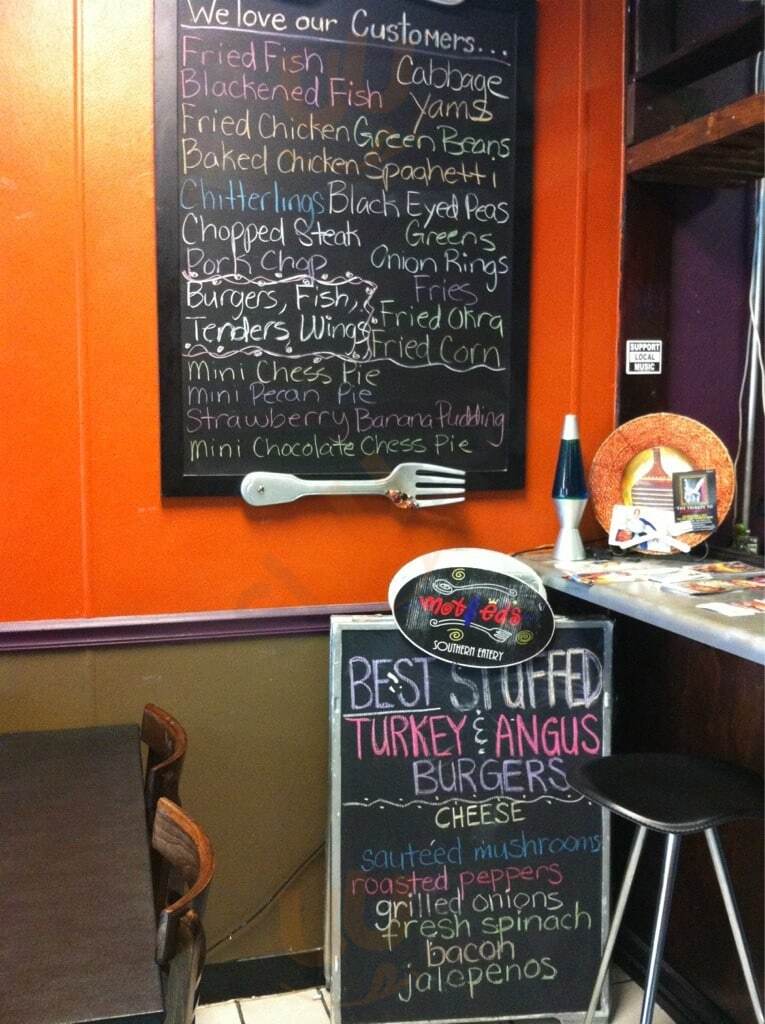 We love our Customers...
Fried Fish
Blackened Fish
Fried Chicken
Baked Chicken
Chitterlings
Chopped Steak
Pork Chop
Burgers, Fish,
Tenders, Wings
Cabbage
Yams
Green Beans
Spaghetti
Black Eyed Peas
Greens
Onion Rings
Fries
Fried Okra
Fried Corn
Mini Chess Pie
mini Pecan Pie
Strawberry Banana Pudding
Mini Chocolate Chess Pie
SUPPORT
LOCAL
MUSIC
mot & eds
SOUTHERN EATERY
BEST STUFFED
TURKEY & ANGUS
BURGERS
CHEESE
sauteed mushrooms
roasted peppers
grilled onions
fresh spinach
bacon
jalepenos